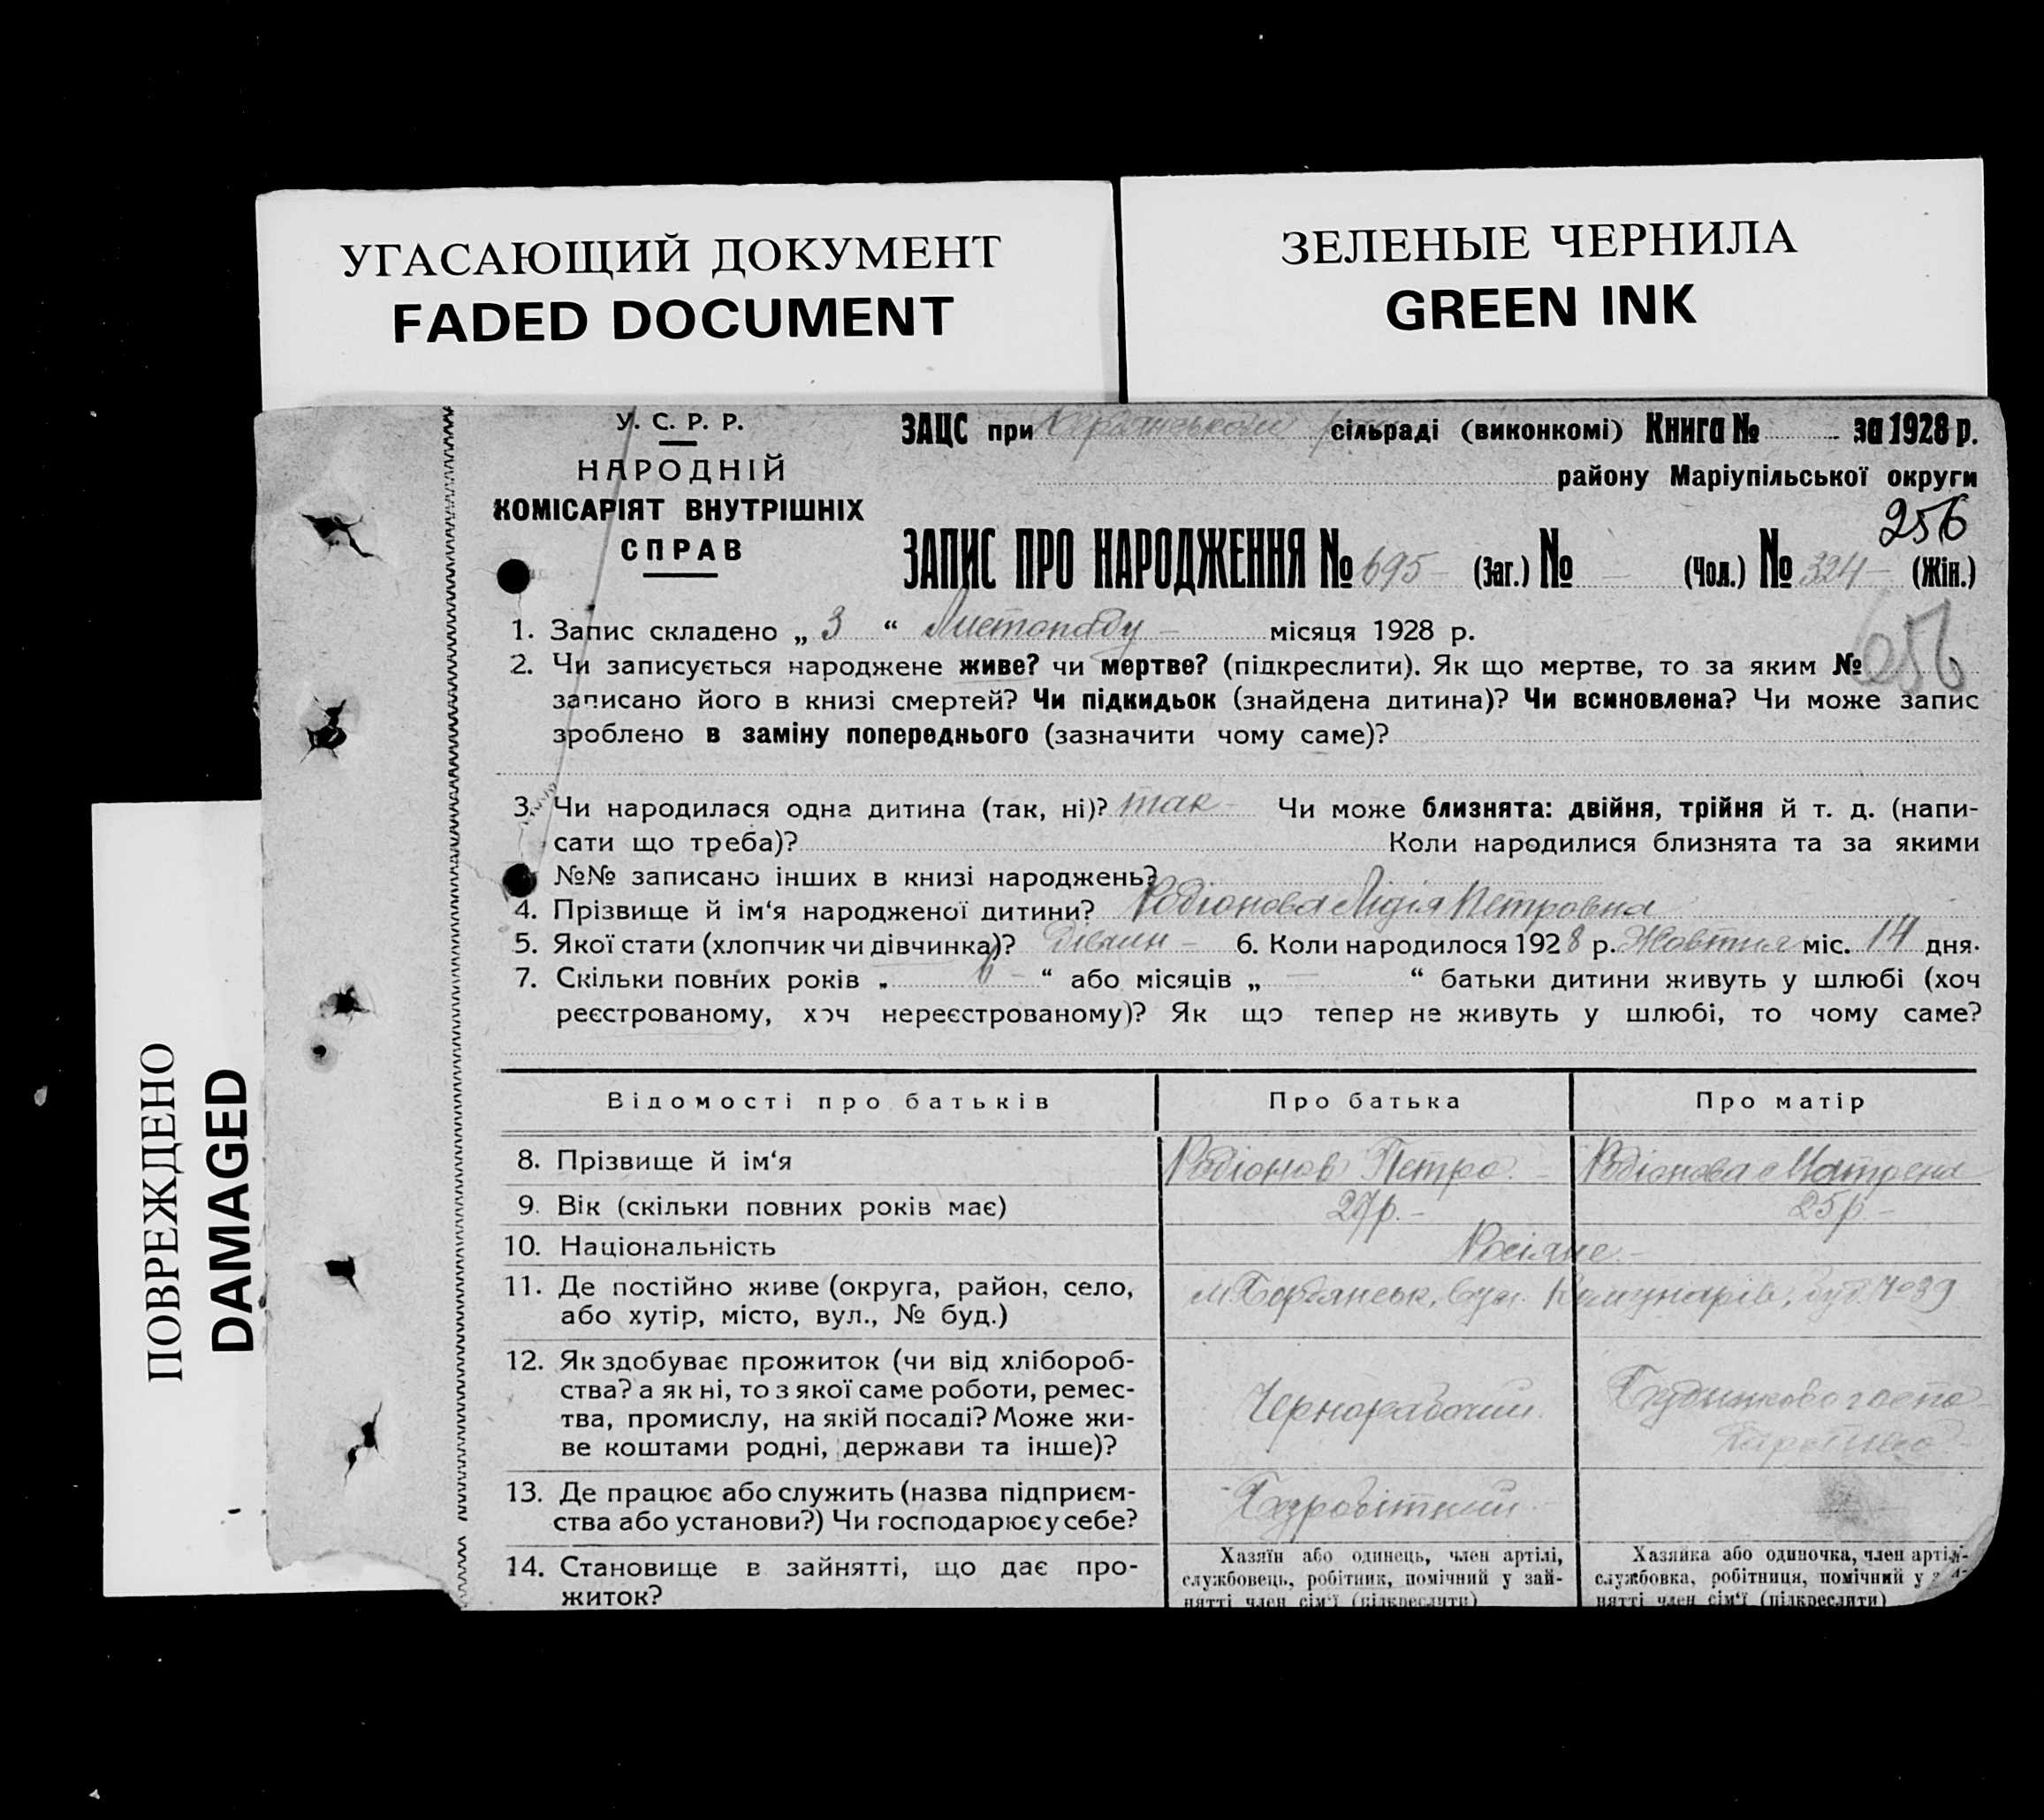 УГАСАЮЩИЙ ДОКУМЕНТ
FADED DOCUMENT
ЗЕЛЕНЫЕ ЧЕРНИЛА
GREEN INK
ПОВРЕЖДЕНО
DAMAGED
У. С. Р. Р.
НАРОДНІЙ
КОМІСАРІЯТ ВНУТРІШНІХ
СПРАВ
ЗАЦС при сільраді (виконкомі) Книга № за 1928 р.
району Маріупільської округи
256
ЗАПИС ПРО НАРОДЖЕННЯ № 695 - (Заг.) № - (Чол.) № 324 - (Жін.)
656
1. Запис складено „ 3 “ Листопаду - місяця 1928 р.
2. Чи записується народжене живе? чи мертве? (підкреслити). Як що мертве, то за яким №
записано його в книзі смертей? Чи підкидьок (знайдена дитина)? Чи всиновлена? Чи може запис
зроблено в заміну попереднього (зазначити чому саме)?
3. Чи народилася одна дитина (так, ні)? так - Чи може близнята: двійня, трійня й т. д. (напи-
сати що треба)? Коли народилися близнята та за якими
№№ записано інших в книзі народжень?
4. Прізвище й ім‘я народженої дитини? Родіонова Лидія Петровна
5. Якої стати (хлопчик чи дівчинка)? 6. Коли народилося 1928 р. Жовтня міс. 14 дня.
7. Скільки повних років „ 6 - “ або місяців „ — “ батьки дитини живуть у шлюбі (хоч
реєстрованому, хоч нереєстрованому)? Як що тепер не живуть у шлюбі, то чому саме?
Відомості про батьків
Про батька
Про матір
8. Прізвище й ім‘я
Родіонов Петро. -
Родіонова Матрена
9. Вік (скільки повних років має)
27р. -
25р -
10. Національність
Росіяне. -
11. Де постійно живе (округа, район, село,
або хутір, місто, вул., № буд.)
м. Бердянськ, вул. Комунарів, буд. № 39
12. Як здобуває прожиток (чи від хлібороб-
ства? а як ні, то з якої саме роботи, ремес-
тва, промислу, на якій посаді? Може жи-
ве коштами родні, держави та інше)?
Чернорабочий.
13. Де працює або служить (назва підприєм-
ства або установи?) Чи господарює у себе?
Безробітний. -
14. Становище в зайнятті, що дає про-
житок?
Хазяїн або одинець, член артілі,
службовець, робітник, помічний у зай-
нятті член сім‘ї (підкреслити)
Хазяйка або одиночка, член артілі-
службовка, робітниця, помічний у
нятті член сім‘ї (підкреслити)